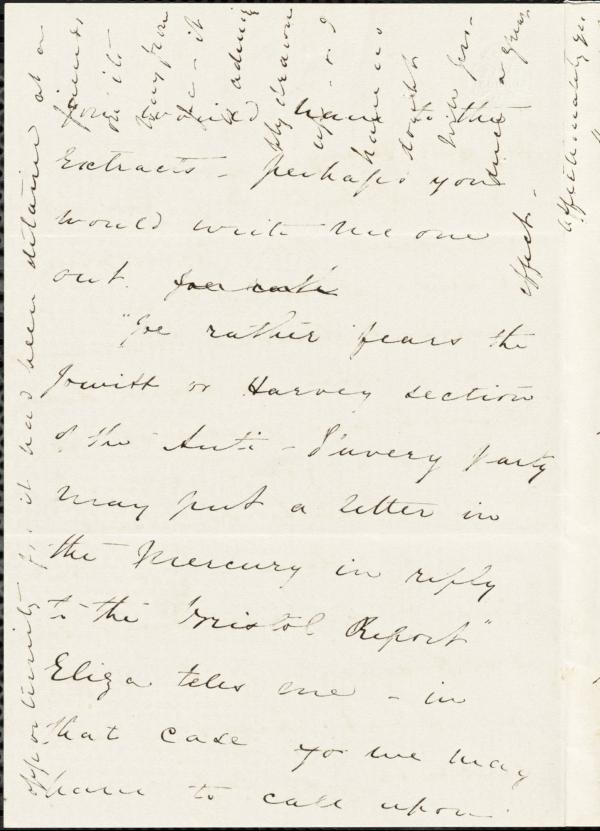 you would have to the
Extracts - perhaps you
would write me one
out.
"Joe rather fears the
Jowitt or Harvey section
of the Anti-Slavery party
may put a letter in
the Mercury in reply
to the Bristol Report"
Eliza tells me - in
that case you we may
have to call upon
opportunity for it had been detained at a
friends
on its
way from
admir
ably drawn
up
have no
doubt
will pro-
duce a great
effect.
Affectionately yrs